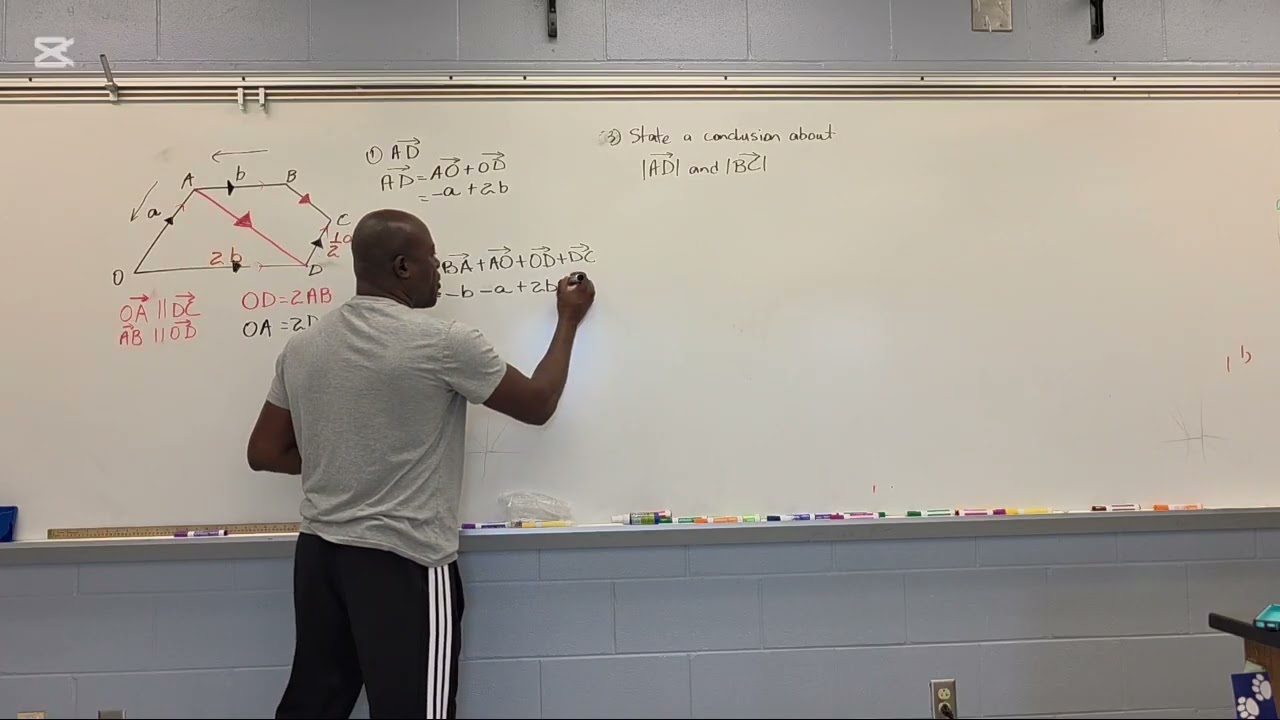 A b B
a
C
1/2 a
O 2b D
OA // DC OD = 2AB
AB // OD OA = 2D
① AD
AD = AO + OD
= -a + 2b
BA + AO + OD + DC
= -b - a + 2b
③ State a conclusion about
|AD| and |BC|